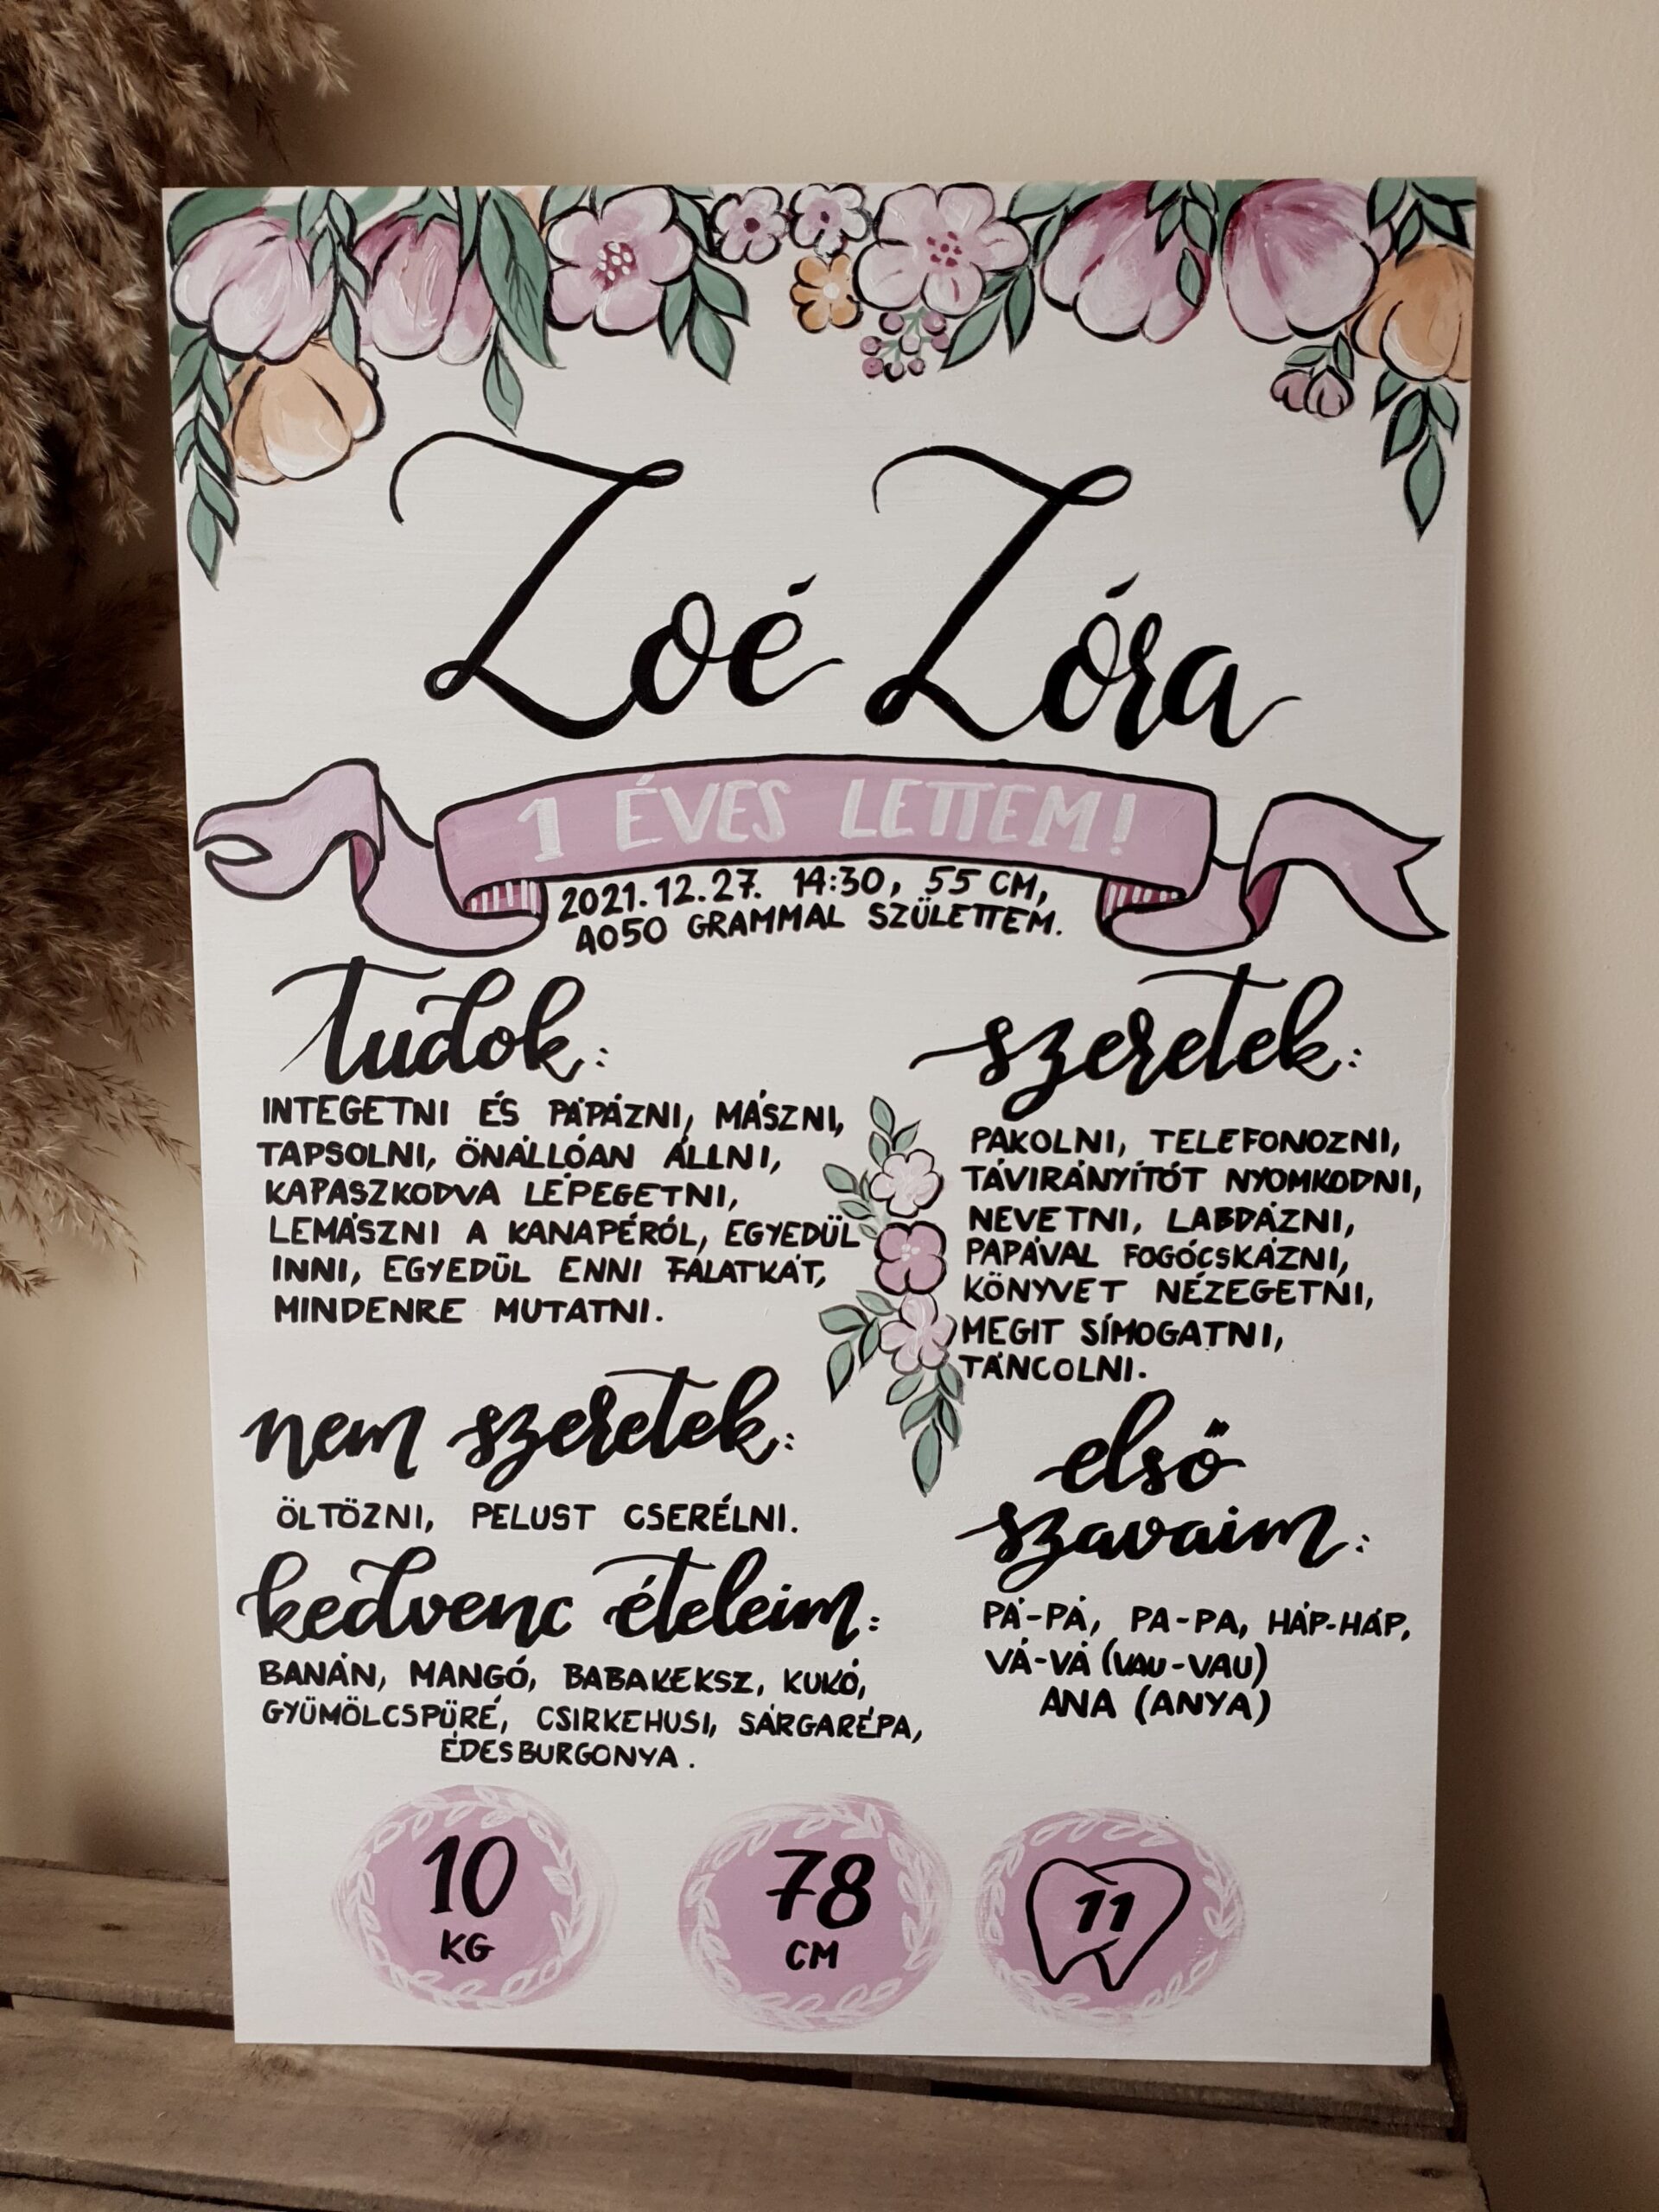 Zoé Zóra
1 ÉVES LETTEM!
2021.12.27. 14:30, 55 CM,
4050 GRAMMAL SZÜLETTEM.
tudok:
INTEGETNI ÉS PÁPÁZNI, MÁSZNI,
TAPSOLNI, ÖNÁLLÓAN ÁLLNI,
KAPASZKODVA LÉPEGETNI,
LEMÁSZNI A KANAPÉRÓL, EGYEDÜL
INNI, EGYEDÜL ENNI FALATKÁT,
MINDENRE MUTATNI.
szeretek:
PAKOLNI, TELEFONOZNI,
TÁVIRÁNYÍTÓT NYOMKODNI,
NEVETNI, LABDÁZNI,
PAPÁVAL FOGÓCSKÁZNI,
KÖNYVET NÉZEGETNI,
MEGIT SÍMOGATNI,
TÁNCOLNI.
nem szeretek:
ÖLTÖZNI, PELUST CSERÉLNI.
első
szavaim:
PÁ-PÁ, PA-PA, HÁP-HÁP,
VÁ-VÁ (VAU-VAU)
ANA (ANYA)
kedvenc ételeim:
BANÁN, MANGÓ, BABAKEKSZ, KUKÓ,
GYÜMÖLCSPÜRÉ, CSIRKEHUSI, SÁRGARÉPA,
ÉDESBURGONYA.
10
KG
78
CM
11